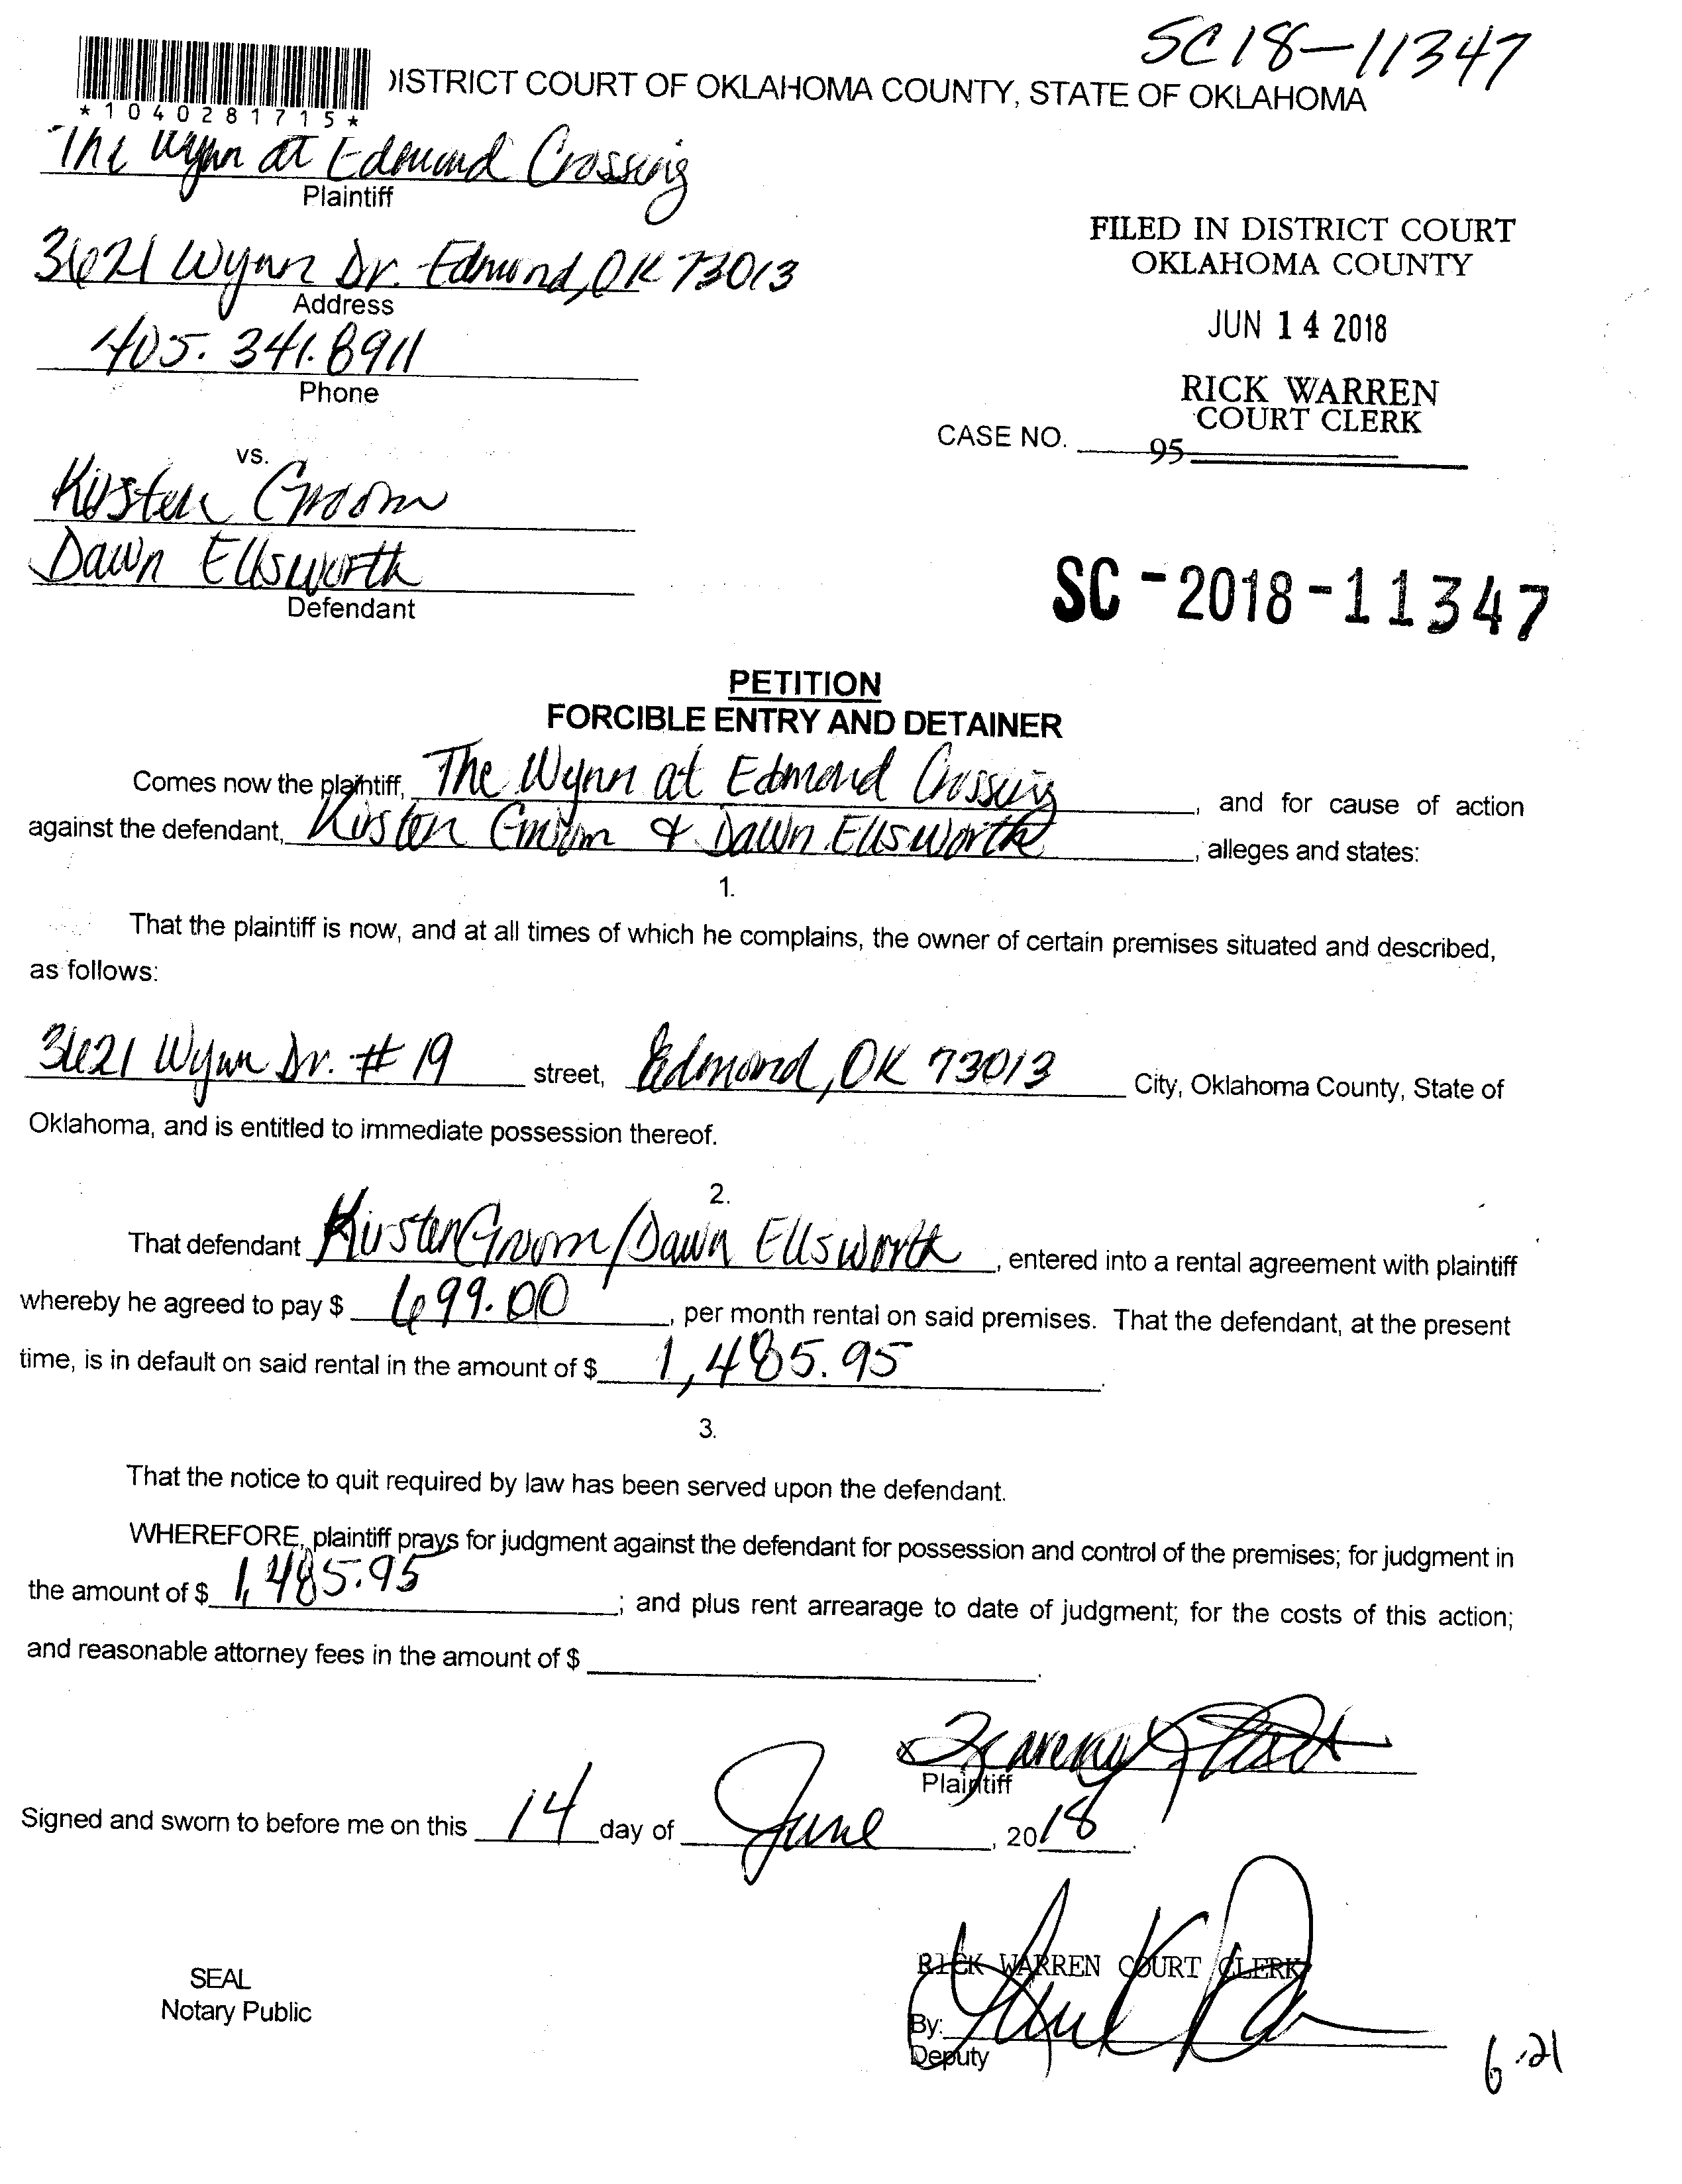 SC18-11347
DISTRICT COURT OF OKLAHOMA COUNTY, STATE OF OKLAHOMA
*1040281715*
The Wynn at Edmond Crossing
Plaintiff
3621 Wynn Dr. Edmond, OK 73013
Address
405.341.8911
Phone
FILED IN DISTRICT COURT
OKLAHOMA COUNTY
JUN 14 2018
RICK WARREN
COURT CLERK
CASE NO.
95
vs.
Kirsten Groom
Dawn Ellsworth
Defendant
SC-2018-11347
PETITION
FORCIBLE ENTRY AND DETAINER
Comes now the plaintiff, The Wynn at Edmond Crossing, and for cause of action
against the defendant, Kirsten Groom & Dawn Ellsworth, alleges and states:
1.
That the plaintiff is now, and at all times of which he complains, the owner of certain premises situated and described,
as follows:
3621 Wynn Dr. #19 street, Edmond, OK 73013 City, Oklahoma County, State of
Oklahoma, and is entitled to immediate possession thereof.
2.
That defendant Kirsten Groom/Dawn Ellsworth, entered into a rental agreement with plaintiff
whereby he agreed to pay $ 699.00, per month rental on said premises. That the defendant, at the present
time, is in default on said rental in the amount of $ 1,485.95.
3.
That the notice to quit required by law has been served upon the defendant.
WHEREFORE, plaintiff prays for judgment against the defendant for possession and control of the premises; for judgment in
the amount of $ 1,485.95; and plus rent arrearage to date of judgment; for the costs of this action;
and reasonable attorney fees in the amount of $ .
Plaintiff
Signed and sworn to before me on this 14 day of June, 2018.
RICK WARREN COURT CLERK
SEAL
Notary Public
By:
Deputy
6-21